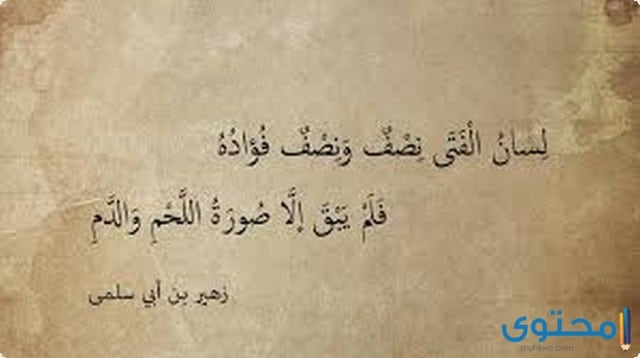 لِسَانُ الْفَتَى نِصْفٌ وَنِصْفٌ فُؤَادُهُ
فَلَمْ يَبْقَ إِلَّا صُورَةُ اللَّحْمِ وَالدَّمِ
زهير بن أبي سلمى
محتوى
muhtwa.com